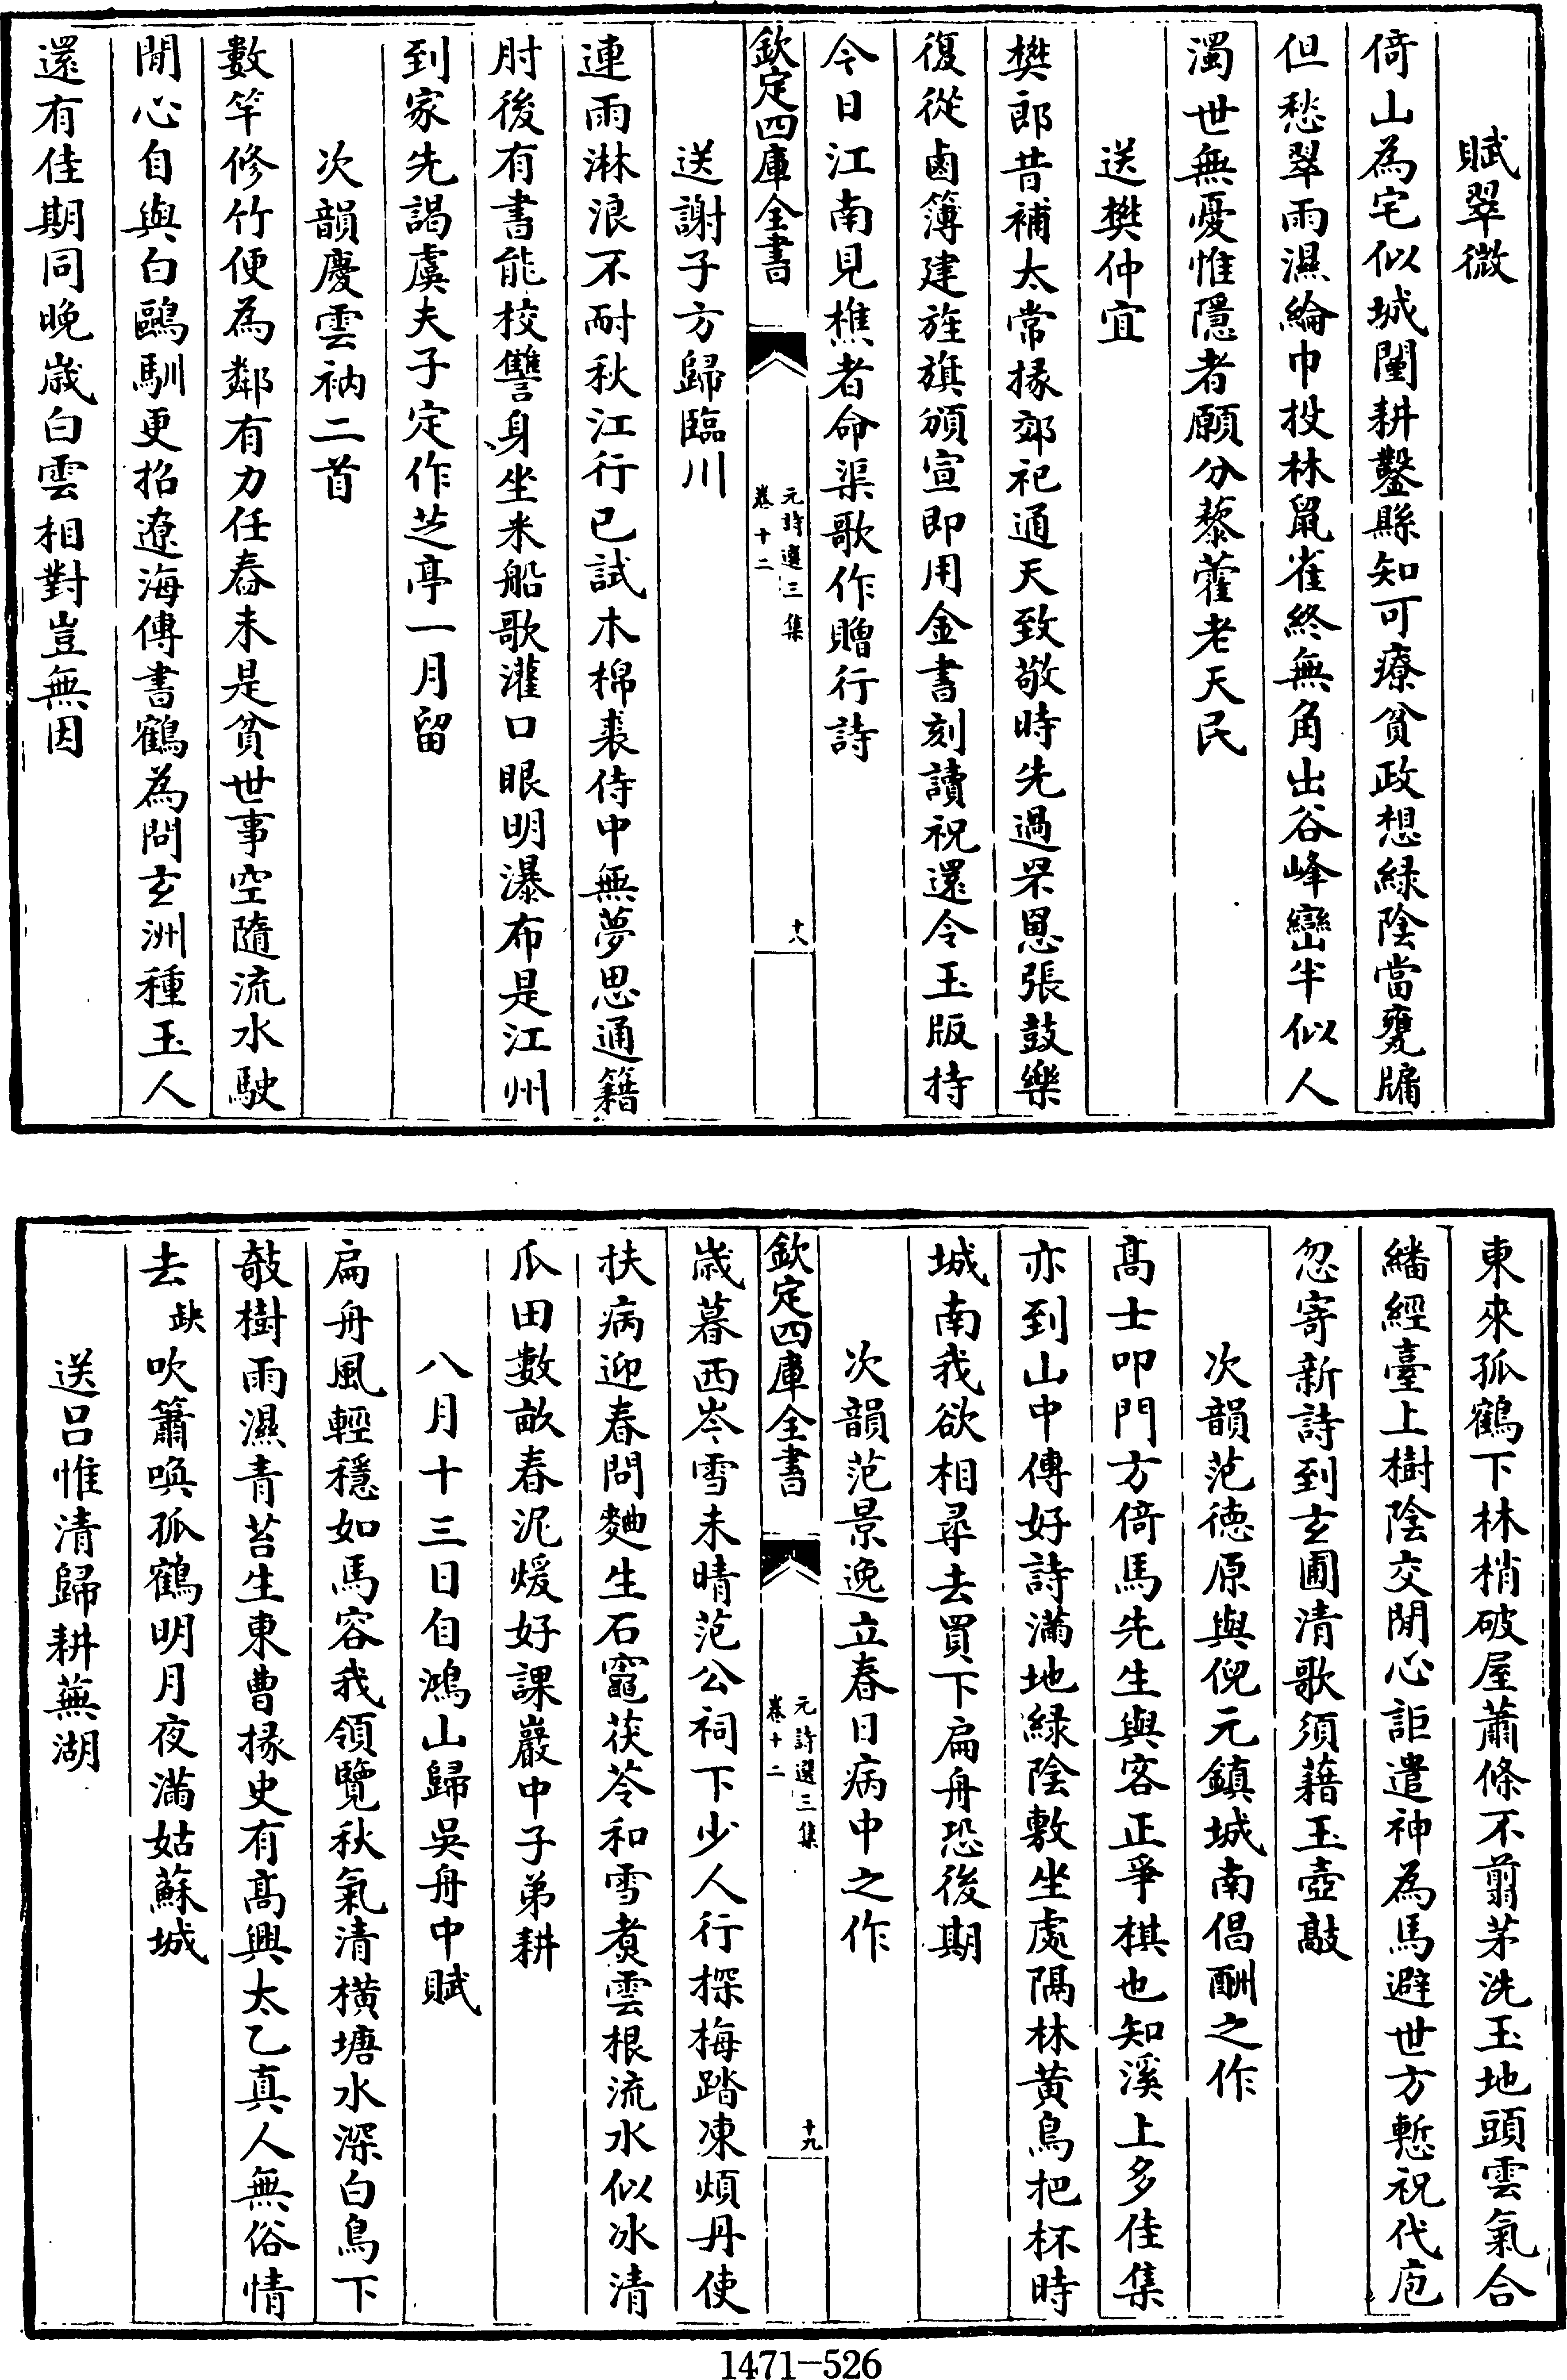 賦翠微
倚山為宅似城闉耕鑿縣知可療貧政想緑陰當甕牖
但愁翠雨濕綸巾投林鼠雀終無角出谷峰巒半似人
濁世無憂惟隱者願分藜藿老天民
送樊仲宜
樊郎昔補太常掾郊祀通天致敬時先過罘罳張鼓樂
復從鹵簿建旌旗頒宣即用金書刻讀祝還令玉版持
今日江南見樵者命渠歌作贈行詩
欽定四庫全書
元詩選三集
卷十二
十八
送謝子方歸臨川
連雨淋浪不耐秋江行已試木棉裘侍中無夢思通籍
肘後有書能校讐身坐米船歌灌口眼明瀑布是江州
到家先謁虞夫子定作芝亭一月留
次韻慶雲衲二首
數竿修竹便為鄰有力任舂未是貧世事空隨流水駛
閒心自與白鷗馴更招遼海傳書鶴為問玄洲種玉人
還有佳期同晚歲白雲相對豈無因
東來孤鶴下林梢破屋蕭條不翦茅洗玉地頭雲氣合
繙經臺上樹陰交閒心詎遣神為馬避世方慙祝代庖
忽寄新詩到玄圃清歌須藉玉壺敲
次韻范德原與倪元鎮城南倡酬之作
髙士叩門方倚馬先生與客正爭棋也知溪上多佳集
亦到山中傳好詩滿地緑陰敷坐處隔林黄鳥把杯時
城南我欲相尋去買下扁舟恐後期
次韻范景逸立春日病中之作
欽定四庫全書
元詩選三集
卷十二
十九
歲暮西岑雪未晴范公祠下少人行探梅踏凍煩丹使
扶病迎春問麯生石竈茯苓和雪煑雲根流水似冰清
瓜田數畝春泥煖好課巖中子弟耕
八月十三日自鴻山歸吳舟中賦
扁舟風輕穩如馬容我領覽秋氣清橫塘水深白鳥下
敧樹雨濕青苔生東曹掾史有髙興太乙真人無俗情
去缺吹簫喚孤鶴明月夜滿姑蘇城
送呂惟清歸耕蕪湖
1471-526